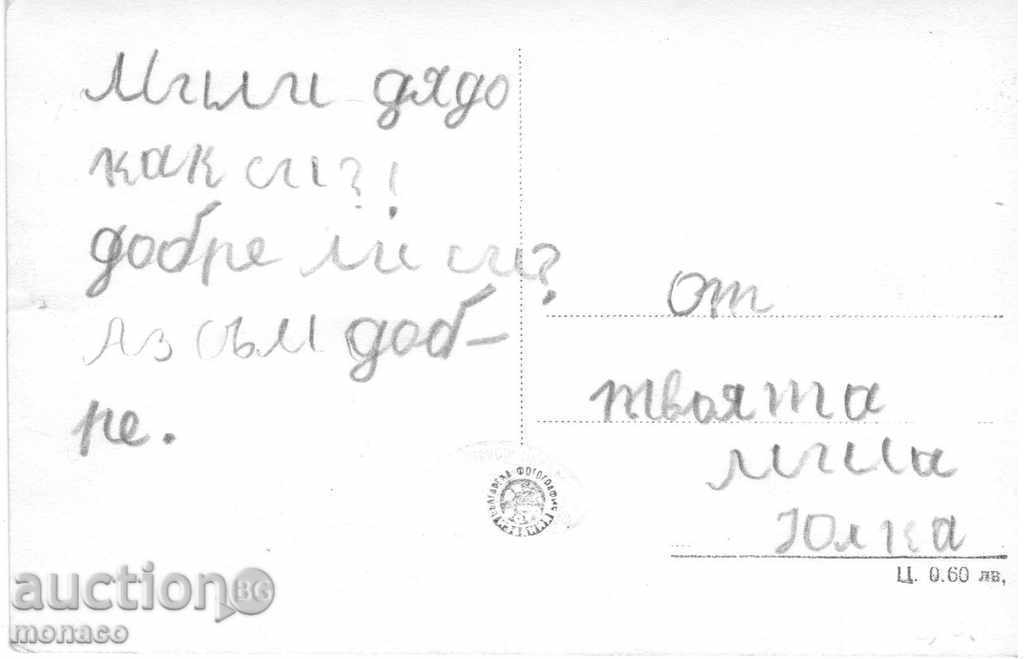 Мили дядо
как си?!
добре ли си?
Аз съм доб-
ре.
От
твоята
мила
Юлка
Ц. 0.60 лв,
auction BG
monaco